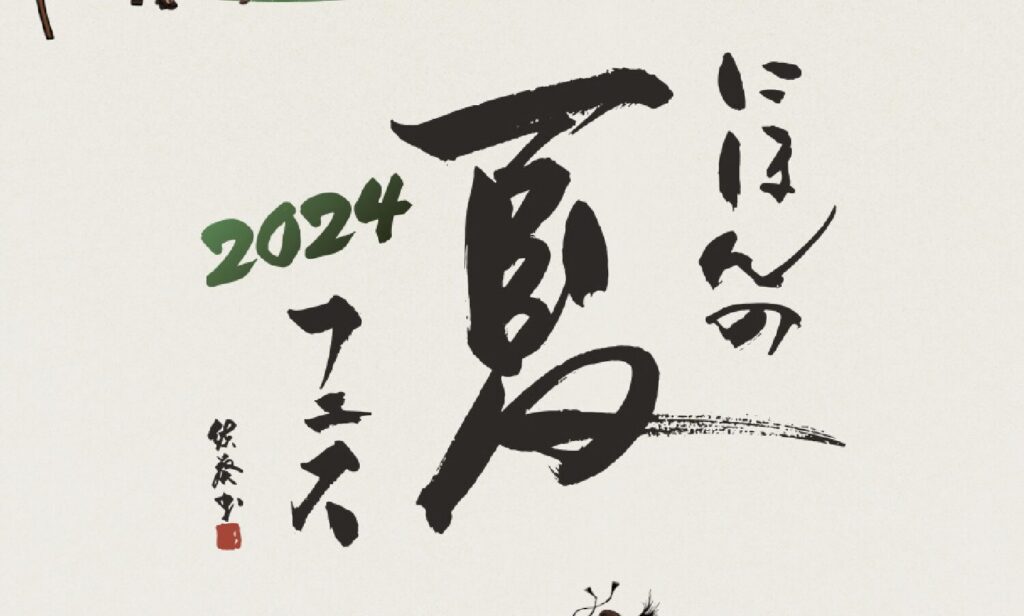 にほんの
夏
フェス
2024